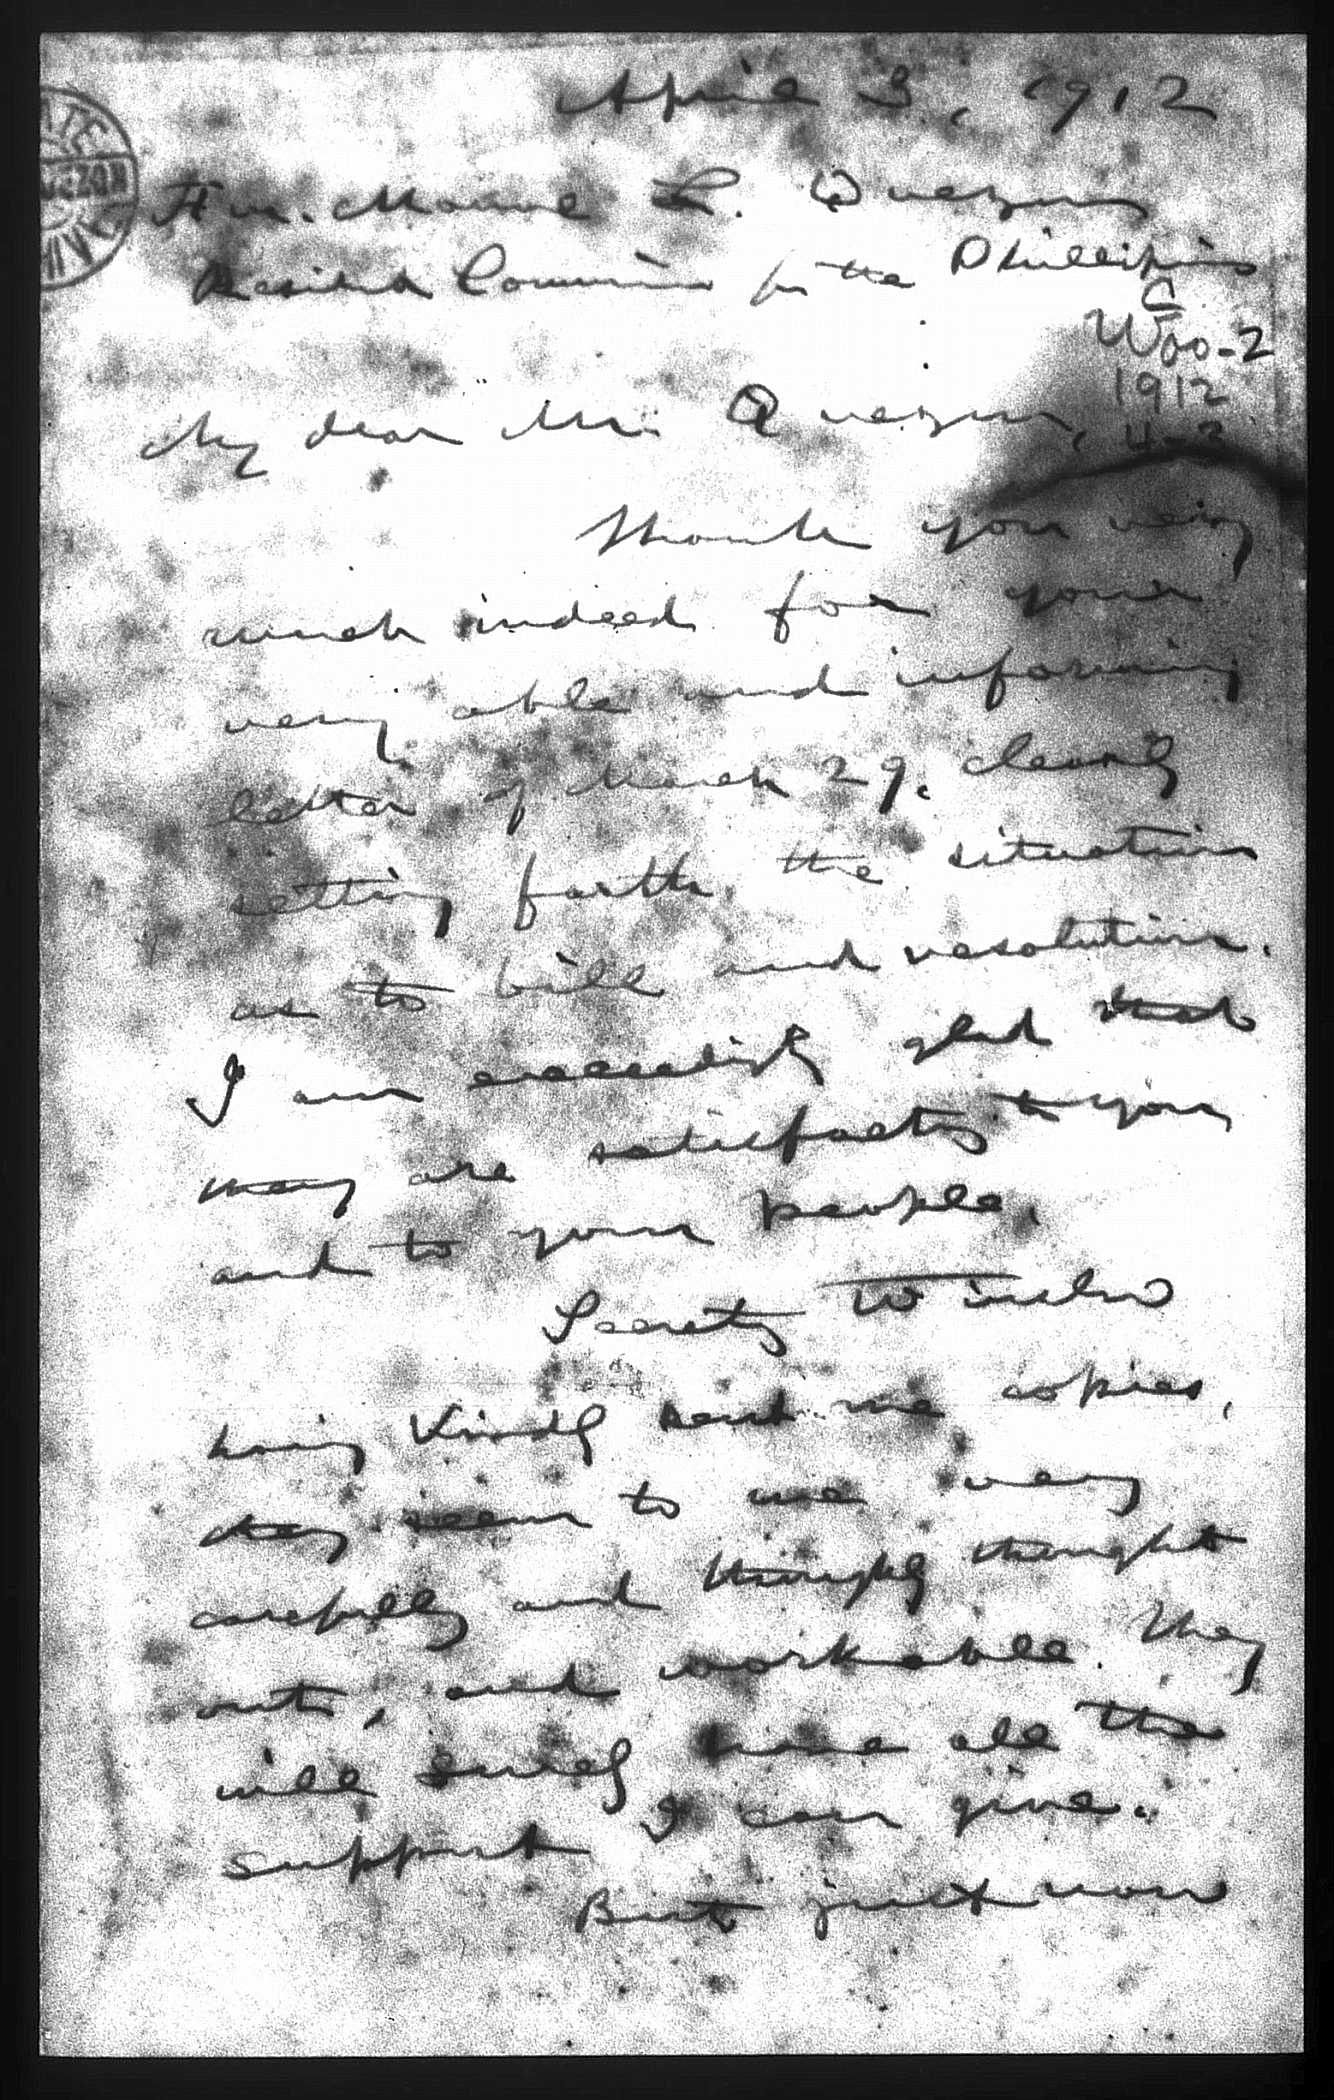 April 3, 1912
Hon. Manuel L. Quezon
Resident Commissioner for the Phillipines
C
Woo-2
1912
4-3
My dear Mr. Quezon,
Thank you very
much indeed for your
very able and informing
letter of March 29, clearly
setting forth the situation
as to bill and resolution.
I am exceedingly glad that
they are satisfactory to you,
and to your people.
Secretary Winslow
having kindly sent me copies,
they seem to me very
carefully and thoroughly thought
out, and workable. They
will surely have all the
support I can give.
But just now